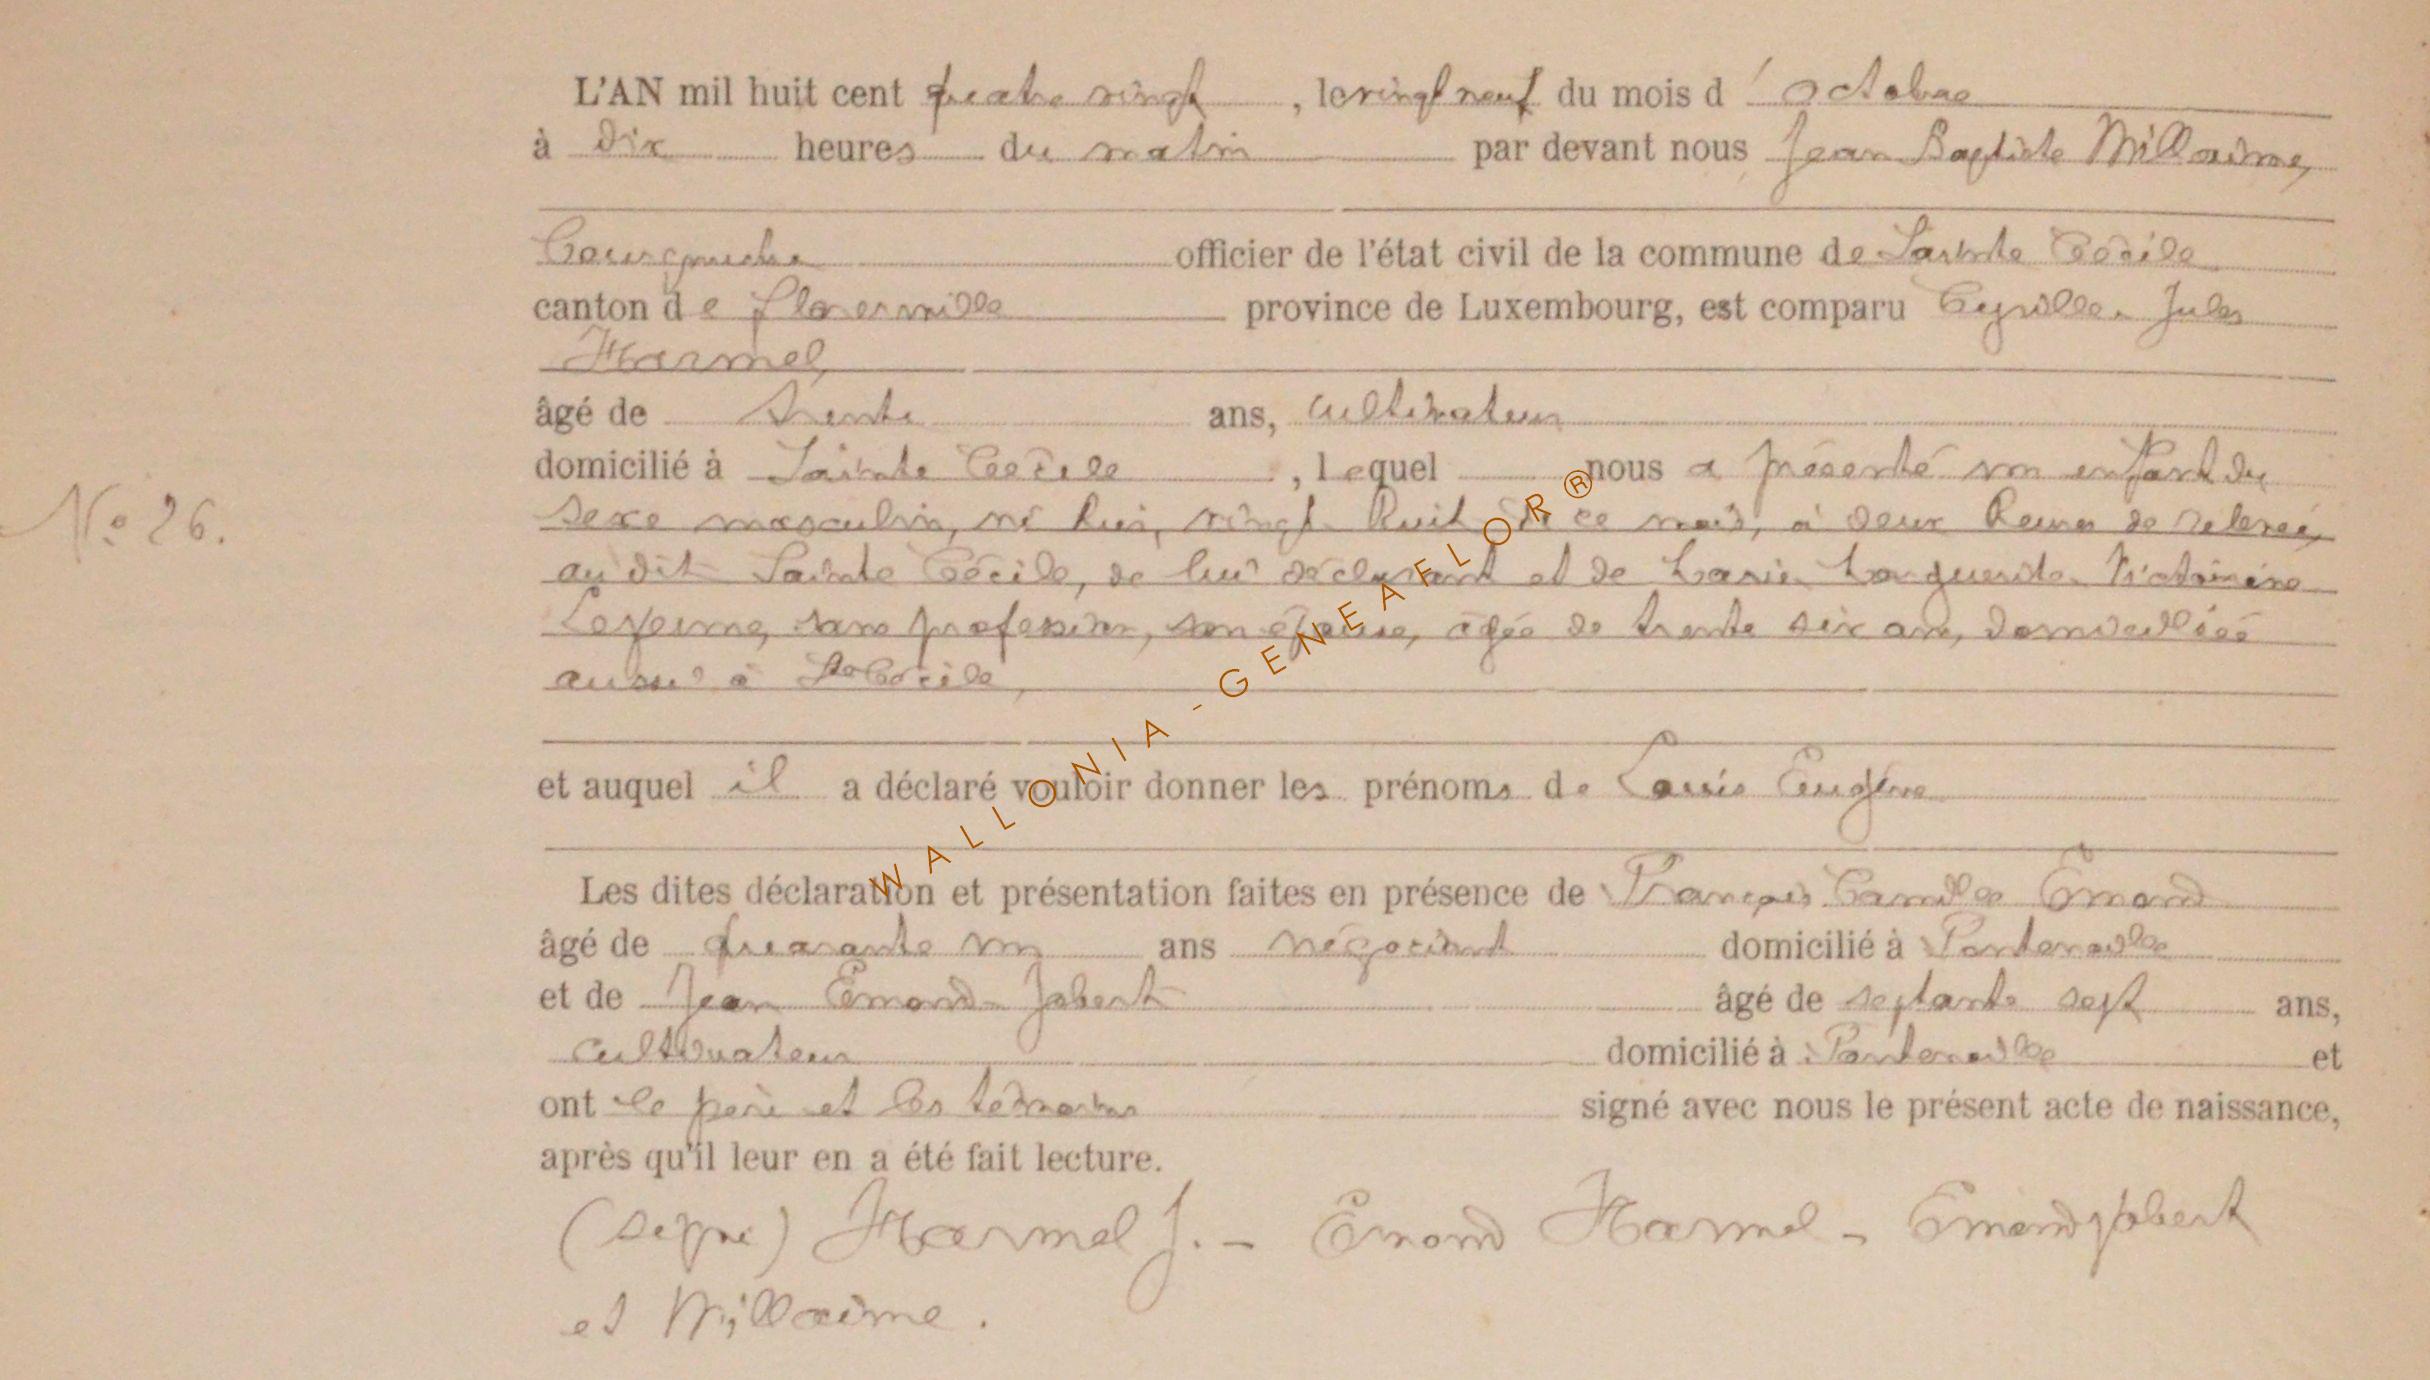 L'AN mil huit cent quatre vingt, le vingt neuf du mois d'octobre
à dix heures du matin par devant nous Jean Baptiste Willaime,
Bourgmestre officier de l'état civil de la commune de Sainte Cécile
canton de Florenville province de Luxembourg, est comparu Cyrille Jules
Harmel,
âgé de trente ans, cultivateur
domicilié à Sainte Cécile, lequel nous a présenté un enfant du
N° 26.
sexe masculin, né hier, vingt huit de ce mois, à deux heures de relevée,
au dit Sainte Cécile, de lui déclarant et de Marie Marguerite
sans profession, son épouse, âgée de trente six ans, domiciliée
aussi à Ste Cécile,
et auquel il a déclaré vouloir donner les prénoms de Louis Eugène
Les dites déclaration et présentation faites en présence de François Camille Émond
âgé de quarante un ans négociant domicilié à
et de Jean Émond-Jobert âgé de septante sept ans,
cultivateur domicilié à et
ont le père et les témoins signé avec nous le présent acte de naissance,
après qu'il leur en a été fait lecture.
(signé) Harmel J. – Émond Harmel – Émond Jobert
et Willaime.
WALLONIA - GENEAFLOR ®